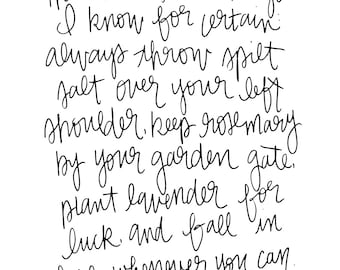 I know for certain
always throw spilt
salt over your left
shoulder, keep rosemary
by your garden gate,
plant lavender for
luck, and fall in
whenever you can.